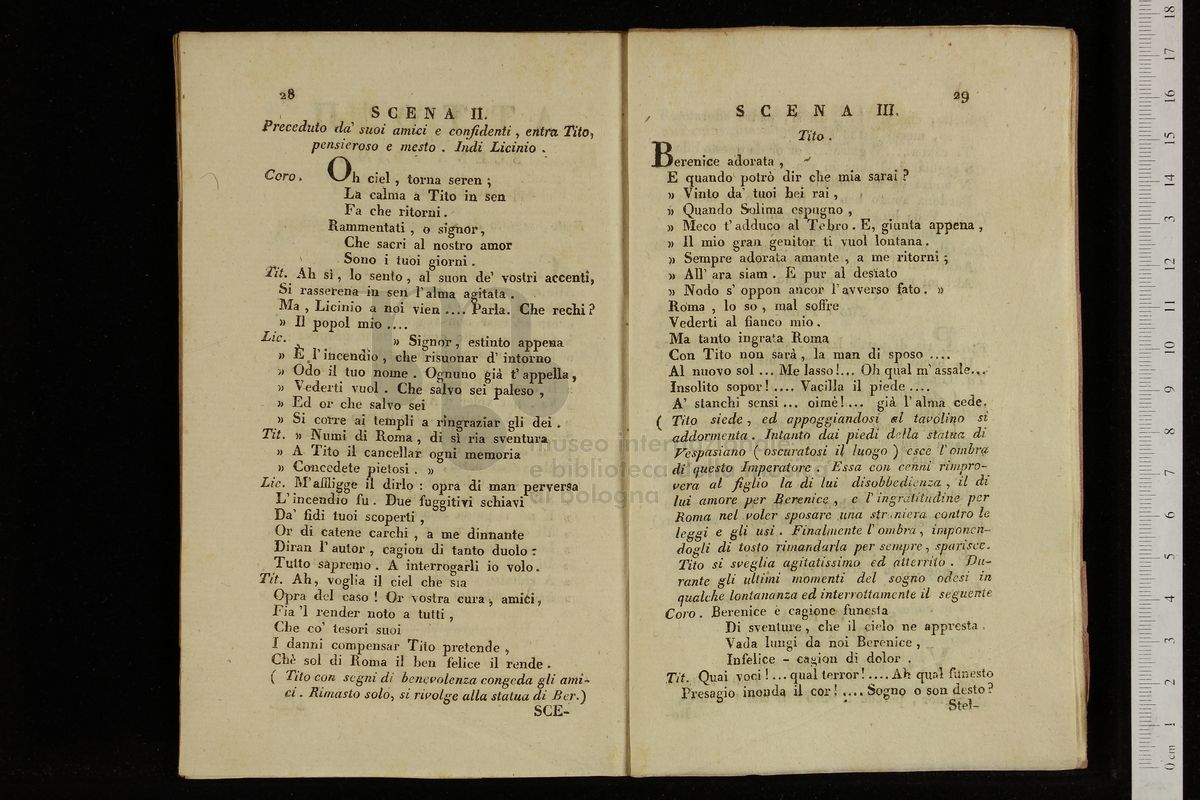 28
SCENA II.
Preceduto da' suoi amici e confidenti, entra Tito,
pensieroso e mesto. Indi Licinio.
Coro. Oh ciel, torna seren;
La calma a Tito in sen
Fa che ritorni.
Rammentati, o signor,
Che sacri al nostro amor
Sono i tuoi giorni.
Tit. Ah sì, lo sento, al suon de' vostri accenti,
Si rasserena in sen l'alma agitata.
Ma, Licinio a noi vien .... Parla. Che rechi?
» Il popol mio ....
Lic. » Signor, estinto appena
» È l'incendio, che risuonar d'intorno
» Odo il tuo nome. Ognuno già t'appella,
» Vederti vuol. Che salvo sei paleso,
» Ed or che salvo sei
» Si corre ai templi a ringraziar gli dei.
Tit. » Numi di Roma, di sì ria sventura
» A Tito il cancellar ogni memoria
» Concedete pietosi. »
Lic. M'affligge il dirlo: opra di man perversa
L'incendio fu. Due fuggitivi schiavi
Da' fidi tuoi scoperti,
Or di catene carchi, a me dinnante
Diran l'autor, cagion di tanto duolo:
Tutto sapremo. A interrogarli io volo.
Tit. Ah, voglia il ciel che sia
Opra del caso! Or vostra cura, amici,
Fia 'l render noto a tutti,
Che co' tesori suoi
I danni compensar Tito pretende,
Chè sol di Roma il ben felice il rende.
( Tito con segni di benevolenza congeda gli ami-
ci. Rimasto solo, si rivolge alla statua di Ber.)
SCE-
29
SCENA III.
Tito.
Berenice adorata,
E quando potrò dir che mia sarai?
» Vinto da' tuoi bei rai,
» Quando Solima espugno,
» Meco t'adduco al Tebro. E, giunta appena,
» Il mio gran genitor ti vuol lontana.
» Sempre adorata amante, a me ritorni;
» All' ara siam. E pur al desiato
» Nodo s'oppon ancor l'avverso fato. »
Roma, lo so, mal soffre
Vederti al fianco mio.
Ma tanto ingrata Roma
Con Tito non sarà, la man di sposo ....
Al nuovo sol ... Me lasso!... Oh qual m'assale...
Insolito sopor! .... Vacilla il piede ....
A' stanchi sensi ... oimè! ... già l'alma cede.
( Tito siede, ed appoggiandosi al tavolino si
addormenta. Intanto dai piedi della statua di
Vespasiano ( oscuratosi il luogo ) esce l'ombra
di questo Imperatore. Essa con cenni rimpro-
vera al figlio la di lui disobbedienza, il di
lui amore per Berenice, e l'ingratitudine per
Roma nel voler sposare una straniera contro le
leggi e gli usi. Finalmente l'ombra, imponen-
dogli di tosto rimandarla per sempre, sparisce.
Tito si sveglia agitatissimo ed atterrito. Du-
rante gli ultimi momenti del sogno odesi in
qualche lontananza ed interrottamente il seguente
Coro. Berenice è cagione funesta
Di sventure, che il cielo ne appresta.
Vada lungi da noi Berenice,
Infelice - cagion di dolor.
Tit. Quai voci! ... qual terror! .... Ah qual funesto
Presagio inonda il cor! .... Sogno o son desto?
Stel-
museo internazionale
e biblioteca della musica
di bologna
0 cm 1 2 3 4 5 6 7 8 9 10 11 12 13 14 15 16 17 18